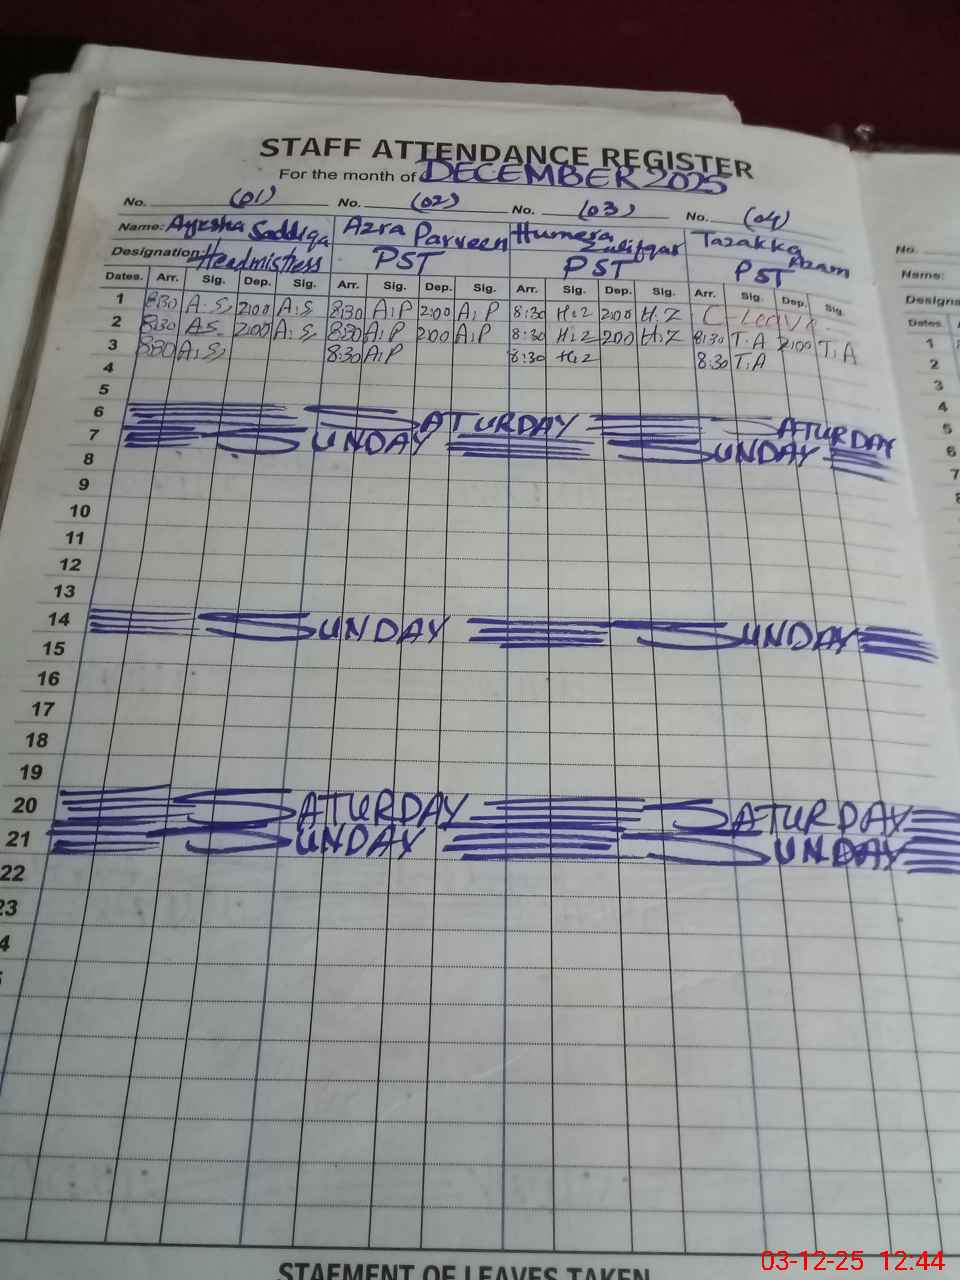 STAFF ATTENDANCE REGISTER
For the month of DECEMBER 2025
No. (01) No. (02) No. (03) No. (04)
Name: Ayesha Saddiqa Azra Parveen Humera Zulifqar Tazakka Azam
Designation: Headmistress PST PST PST
Dates. Arr. Sig. Dep. Sig. Arr. Sig. Dep. Sig. Arr. Sig. Dep. Sig. Arr. Sig. Dep. Sig.
1 8:30 A.S 2:00 A.S 8:30 A.P 2:00 A.P 8:30 H.Z 2:00 H.Z C-Leave
2 8:30 A.S 2:00 A.S 8:30 A.P 2:00 A.P 8:30 H.Z 2:00 H.Z 8:30 T.A 2:00 T.A
3 8:30 A.S 8:30 A.P 8:30 H.Z 8:30 T.A
4
5
6 SATURDAY SATURDAY
7 SUNDAY SUNDAY
8
9
10
11
12
13
14 SUNDAY SUNDAY
15
16
17
18
19
20 SATURDAY SATURDAY
21 SUNDAY SUNDAY
22
23
4
STAEMENT OF LEAVES TAKEN
No.
Name:
Designa
Dates.
1
2
3
4
5
6
7
8
03-12-25 12:44